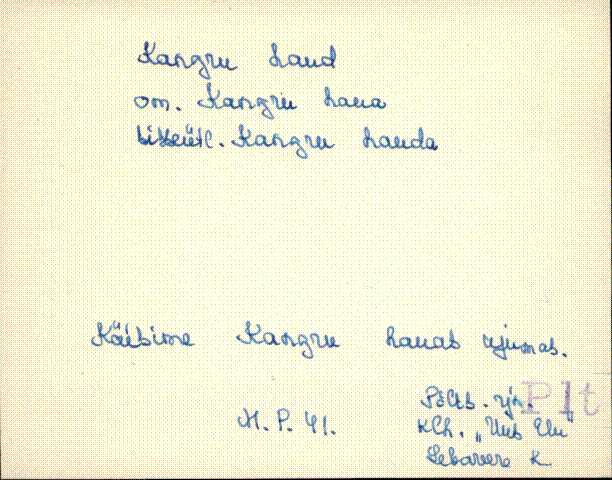 Kangru haud
om. Kangru haua
sisseütl. Kangru hauda
Käisime Kangru hauas ujumas.
Põlts. rjn. Plt
M. P. 41. klh. „Uus Elu"
Lebavere k